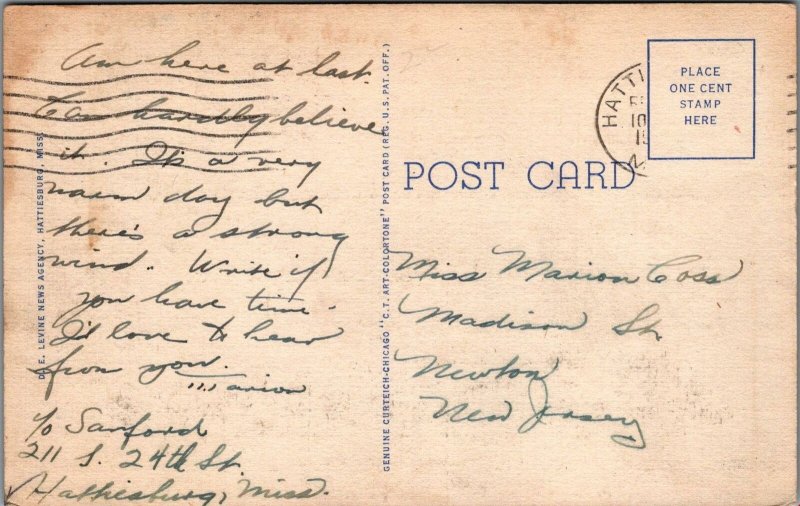 Am here at last.
Can hardly believe
it. It's a very
warm day but
there's a strong
wind. Write if
you have time.
I'd love to hear
from you.
Marion
c/o Sanford
211 S. 24th St.
Hattiesburg, Miss.
E. LEVINE NEWS AGENCY, HATTIESBURG, MISS.
GENUINE CURTEICH-CHICAGO "C.T. ART-COLORTONE" POST CARD (REG. U.S. PAT. OFF.)
POST CARD
HATTI
PLACE
ONE CENT
STAMP
HERE
Miss Marion Coss
Madison St.
Newton
New Jersey